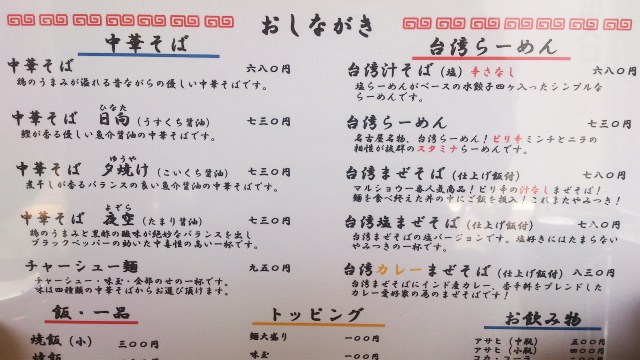 おしながき
中華そば
中華そば 六八〇円
鶏のうまみが溢れる昔ながらの優しい中華そばです。
ひなた
中華そば 日向(うすくち醤油) 七三〇円
鰹が香る優しい魚介醤油の中華そばです。
ゆうや
中華そば 夕焼け(こいくち醤油) 七三〇円
煮干しが香るバランスの良い魚介醤油の中華そばです。
よぞら
中華そば 夜空(たまり醤油) 七三〇円
鶏のうまみと黒酢の酸味が絶妙なバランスを出し
ブラックペッパーの効いた中毒性の高い一杯です。
チャーシュー麺 九五〇円
チャーシュー・味玉・全部のせの一杯です。
味は四種類の中華そばからお選び頂けます。
台湾らーめん
台湾汁そば(塩)辛さなし 六八〇円
塩らーめんがベースの水餃子四ヶ入ったシンプルな
らーめんです。
台湾らーめん 七三〇円
名古屋名物、台湾らーめん!ピリ辛ミンチとニラの
相性が抜群のスタミナらーめんです。
台湾まぜそば(仕上げ飯付) 七八〇円
マルショウ一番人気商品!ピリ辛の汁なしまぜそば!
麺を食べ終えた丼の中にご飯を投入!これまたやみつき!
台湾塩まぜそば(仕上げ飯付) 七八〇円
台湾まぜそばの塩バージョンです。塩好きにはたまらない
やみつきの一杯です。
台湾カレーまぜそば(仕上げ飯付) 八三〇円
台湾まぜそばにインド産カレー、香辛料をブレンドした
カレー愛好家の為のまぜそばです!
飯・一品
焼飯(小) 三〇〇円
焼飯
トッピング
麺大盛り 一〇〇円
味玉 一〇〇円
お飲み物
アサヒ(中瓶) 五〇〇円
アサヒ(小瓶) 四〇〇円
コカ・コーラ